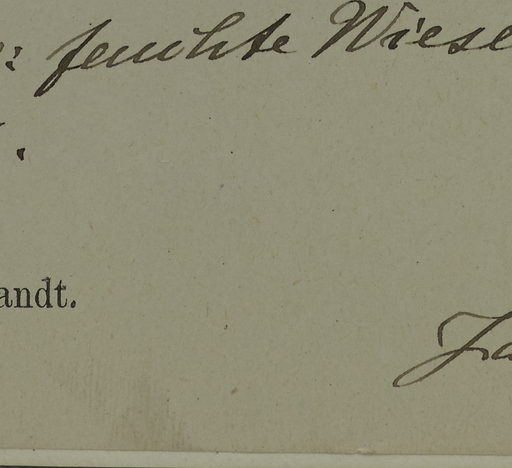 : feuchte Wiese
.
andt.
Ja